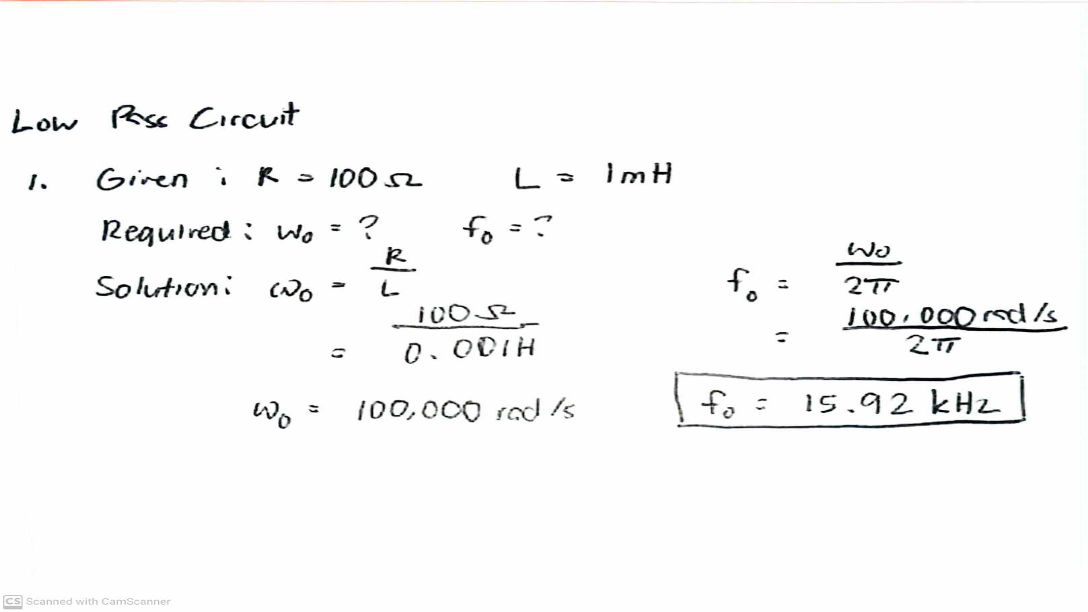 Low Pass Circuit
1. Given : R = 100 Ω L = 1mH
Required : W₀ = ? f₀ = ?
Solution : ω₀ = R/L
= 100 Ω / 0.001H
ω₀ = 100,000 rad/s
f₀ = W₀/2π
= 100,000 rad/s / 2π
f₀ = 15.92 kHz
CS Scanned with CamScanner